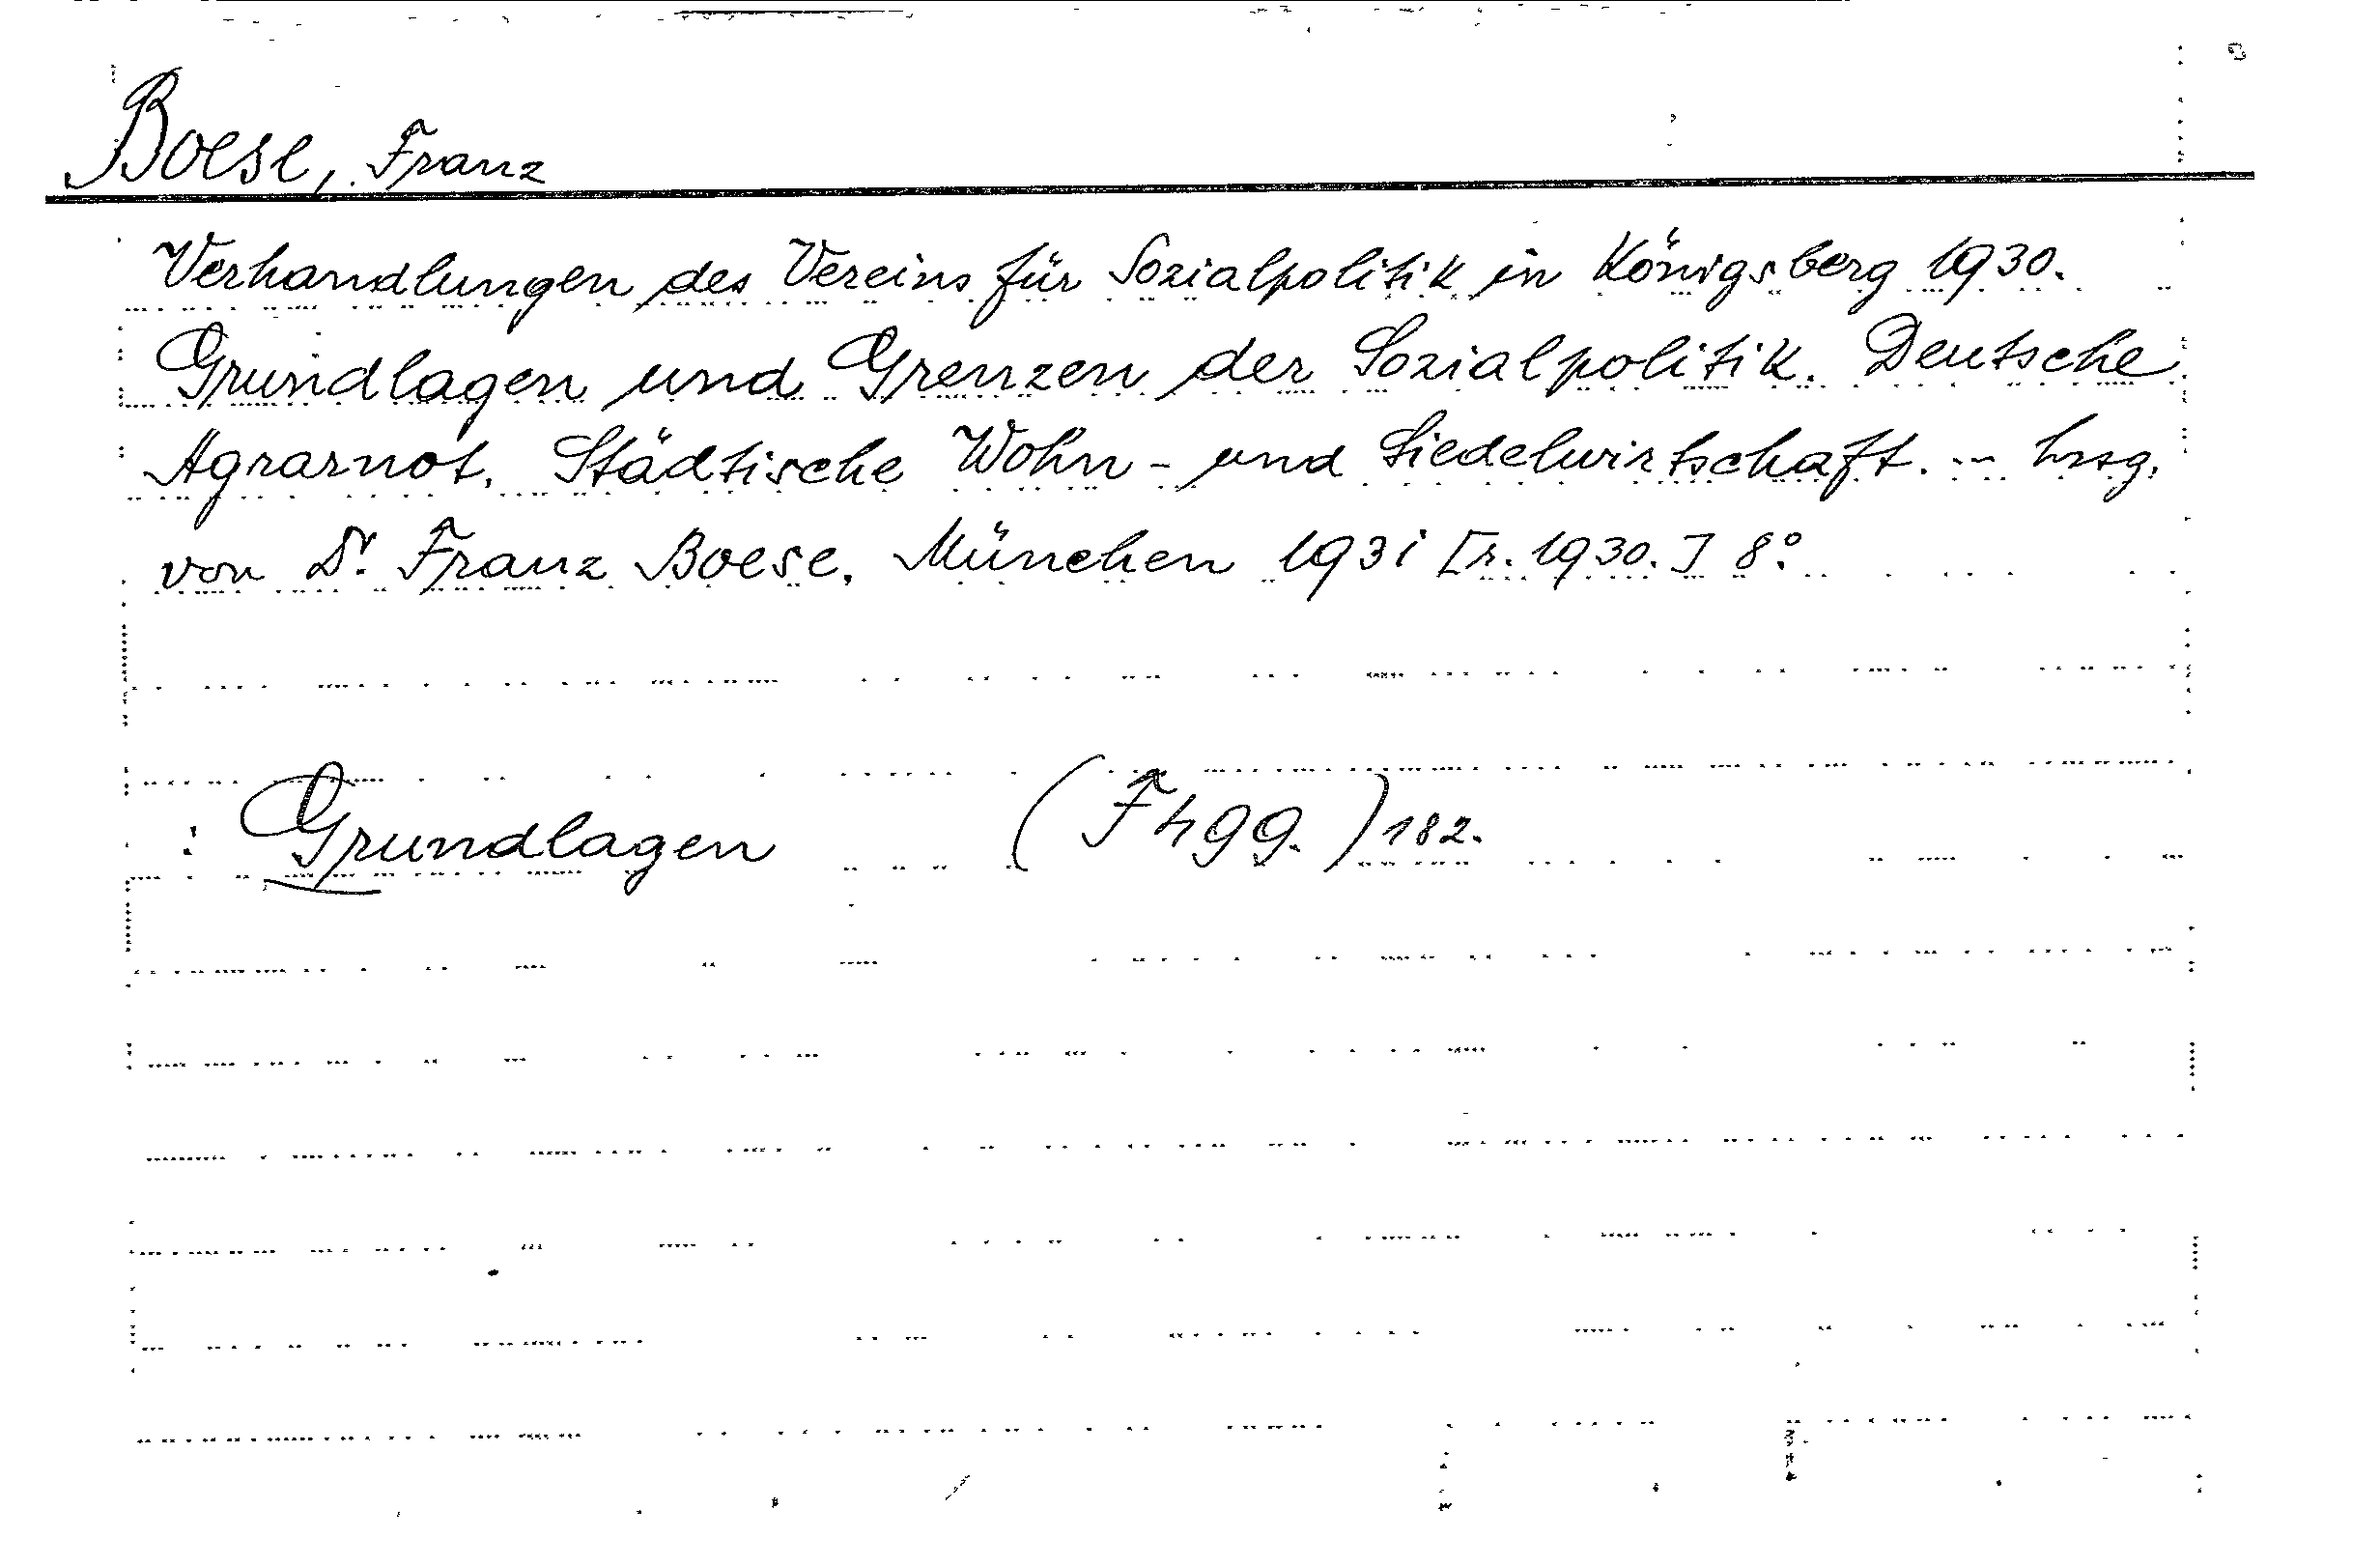 Boese, Franz
Verhandlungen des Vereins für Sozialpolitik in Königsberg 1930.
Grundlagen und Grenzen der Sozialpolitik. Deutsche
Agrarnot. Städtische Wohn- und Siedelwirtschaft. - hrsg.
von Dr. Franz Boese. München 1931 [r. 1930.] 8°
: Grundlagen (F 499.) 182.